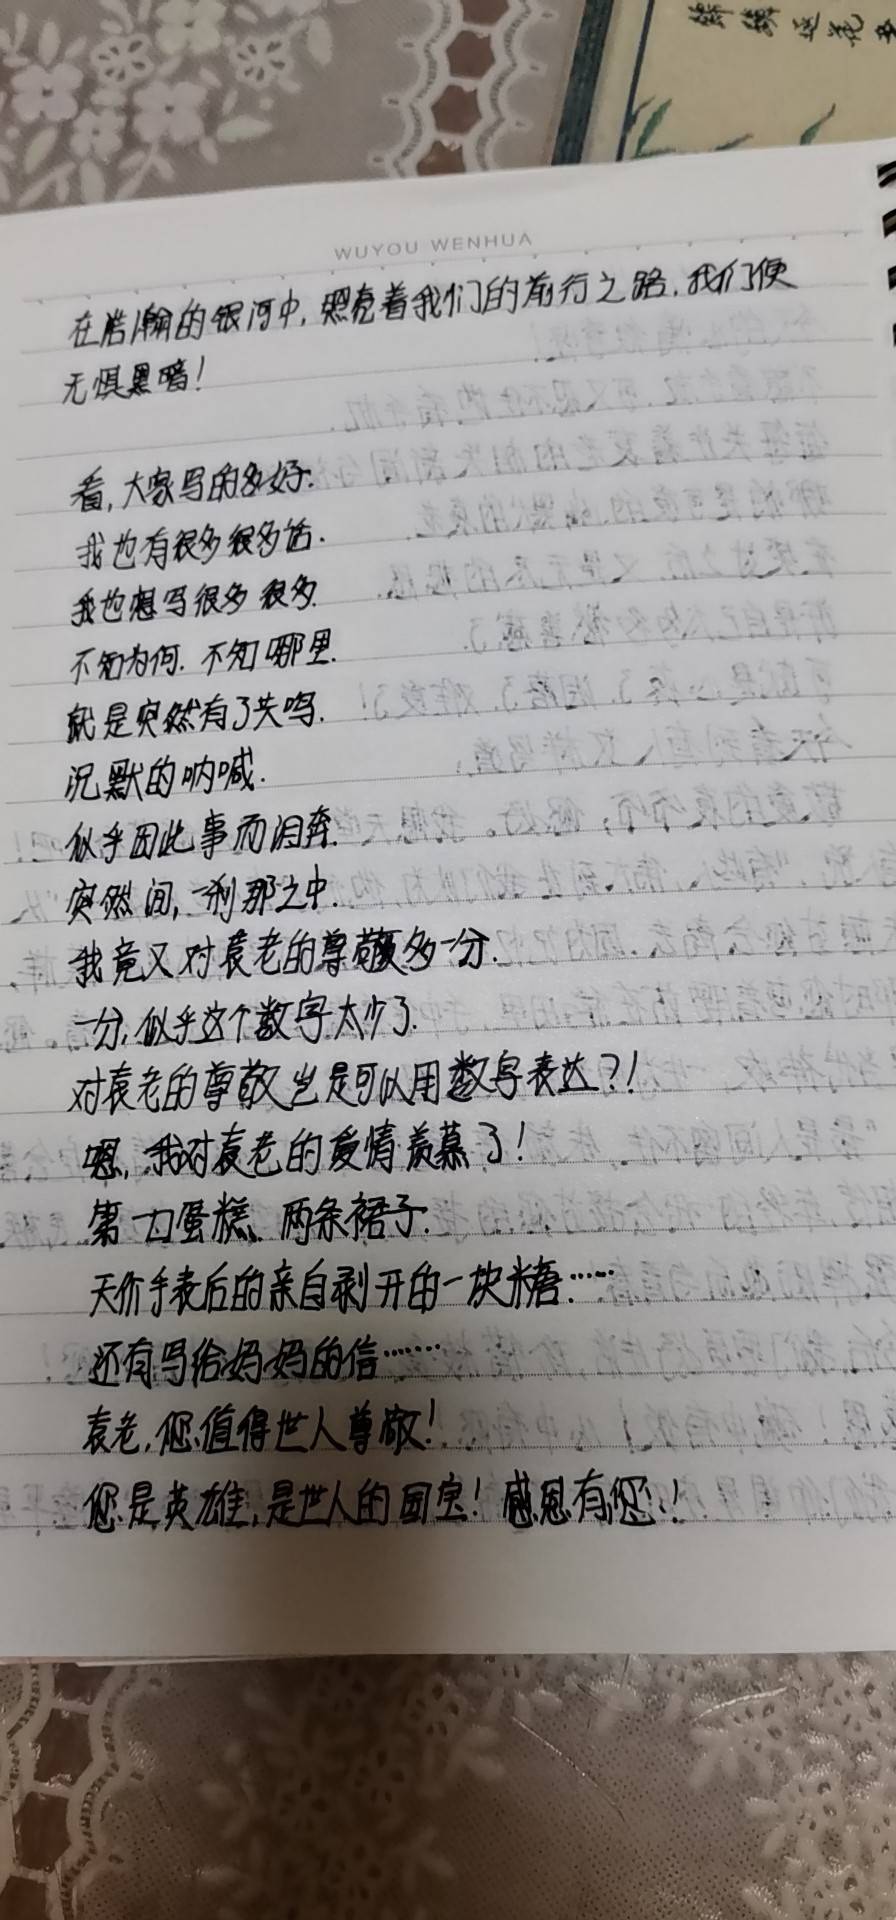 WUYOU WENHUA
在浩瀚的银河中,照亮着我们的前行之路,我们便
无惧黑暗!
看,大家写的多好.
我也有很多很多话.
我也想写很多很多.
不知为何.不知哪里.
就是突然有了共鸣.
沉默的呐喊.
似乎因此事而泪奔.
突然间,一刹那之中.
我竟又对袁老的尊敬多一分.
一分,似乎这个数字太少了.
对袁老的尊敬岂是可以用数字表达?!
嗯,我对袁老的爱情羡慕了!
第一口蛋糕、两条裙子.
天价手表后的亲自剥开的一块糖……
还有写给妈妈的信……
袁老,您值得世人尊敬!
您是英雄,是世人的国宝!感恩有您!